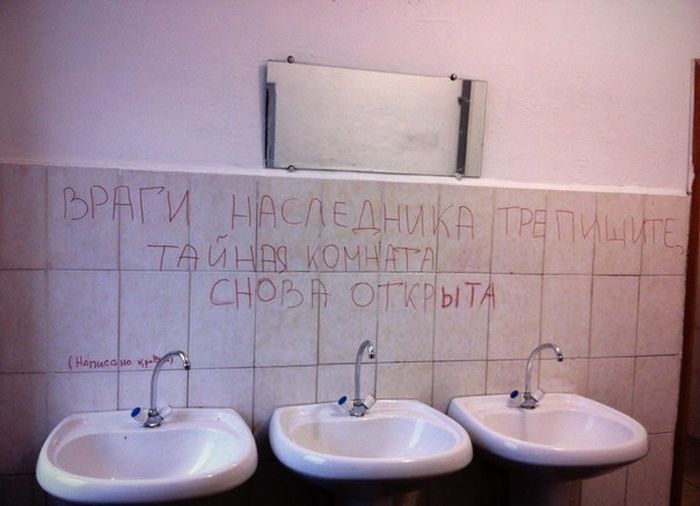 ВРАГИ НАСЛЕДНИКА ТРЕПИЩИТЕ,
ТАЙНАЯ КОМНАТА
СНОВА ОТКРЫТА
(Написано кровью)